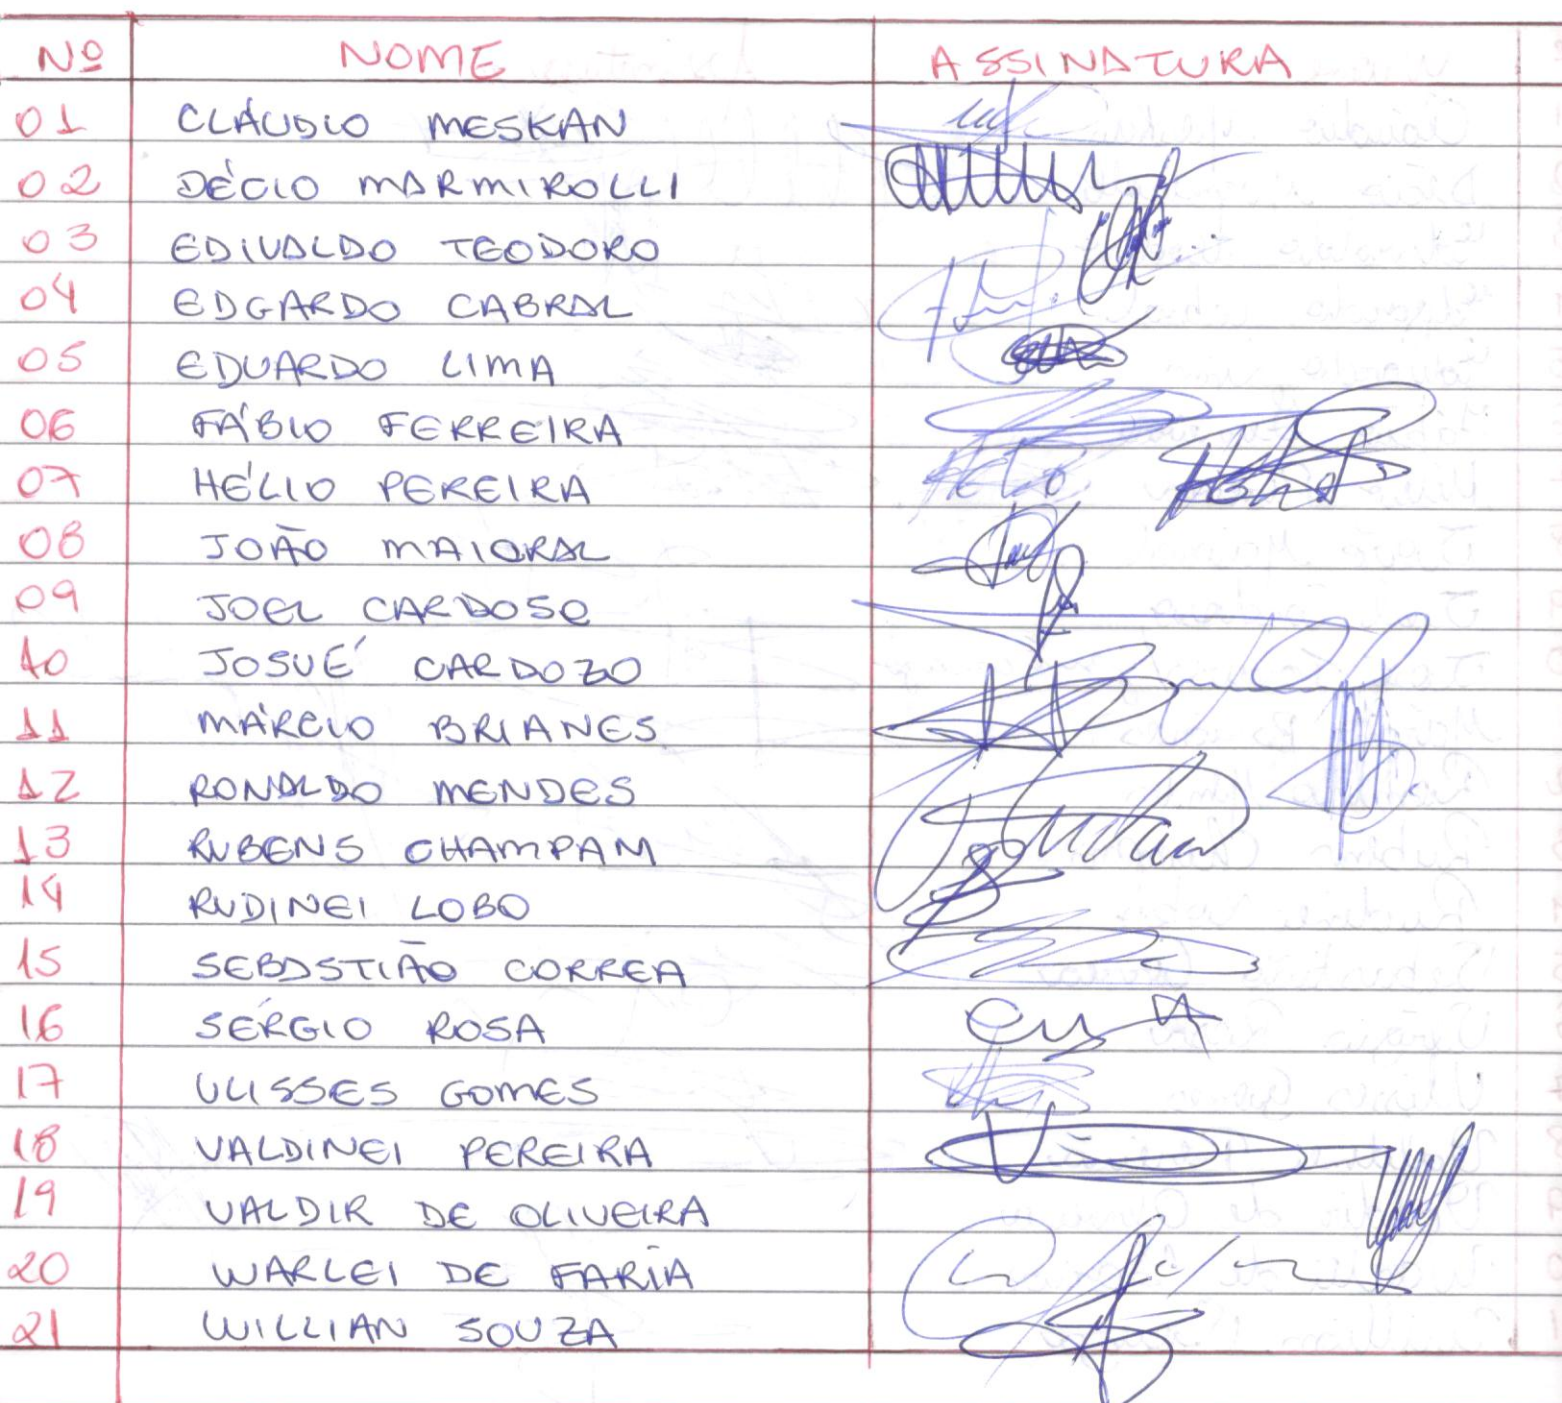 Nº NOME ASSINATURA
01 CLÁUDIO MESKAN
02 DÉCIO MARMIROLLI
03 EDIVALDO TEODORO
04 EDGARDO CABRAL
05 EDUARDO LIMA
06 FÁBIO FERREIRA
07 HÉLIO PEREIRA
08 JOÃO MAIORAL
09 JOEL CARDOSO
10 JOSUÉ CARDOZO
11 MÁRCIO BRIANES
12 RONALDO MENDES
13 RUBENS CHAMPAM
14 RUDINEI LOBO
15 SEBASTIÃO CORREA
16 SÉRGIO ROSA
17 ULISSES GOMES
18 VALDINEI PEREIRA
19 VALDIR DE OLIVEIRA
20 WARLEI DE FARIA
21 WILLIAN SOUZA